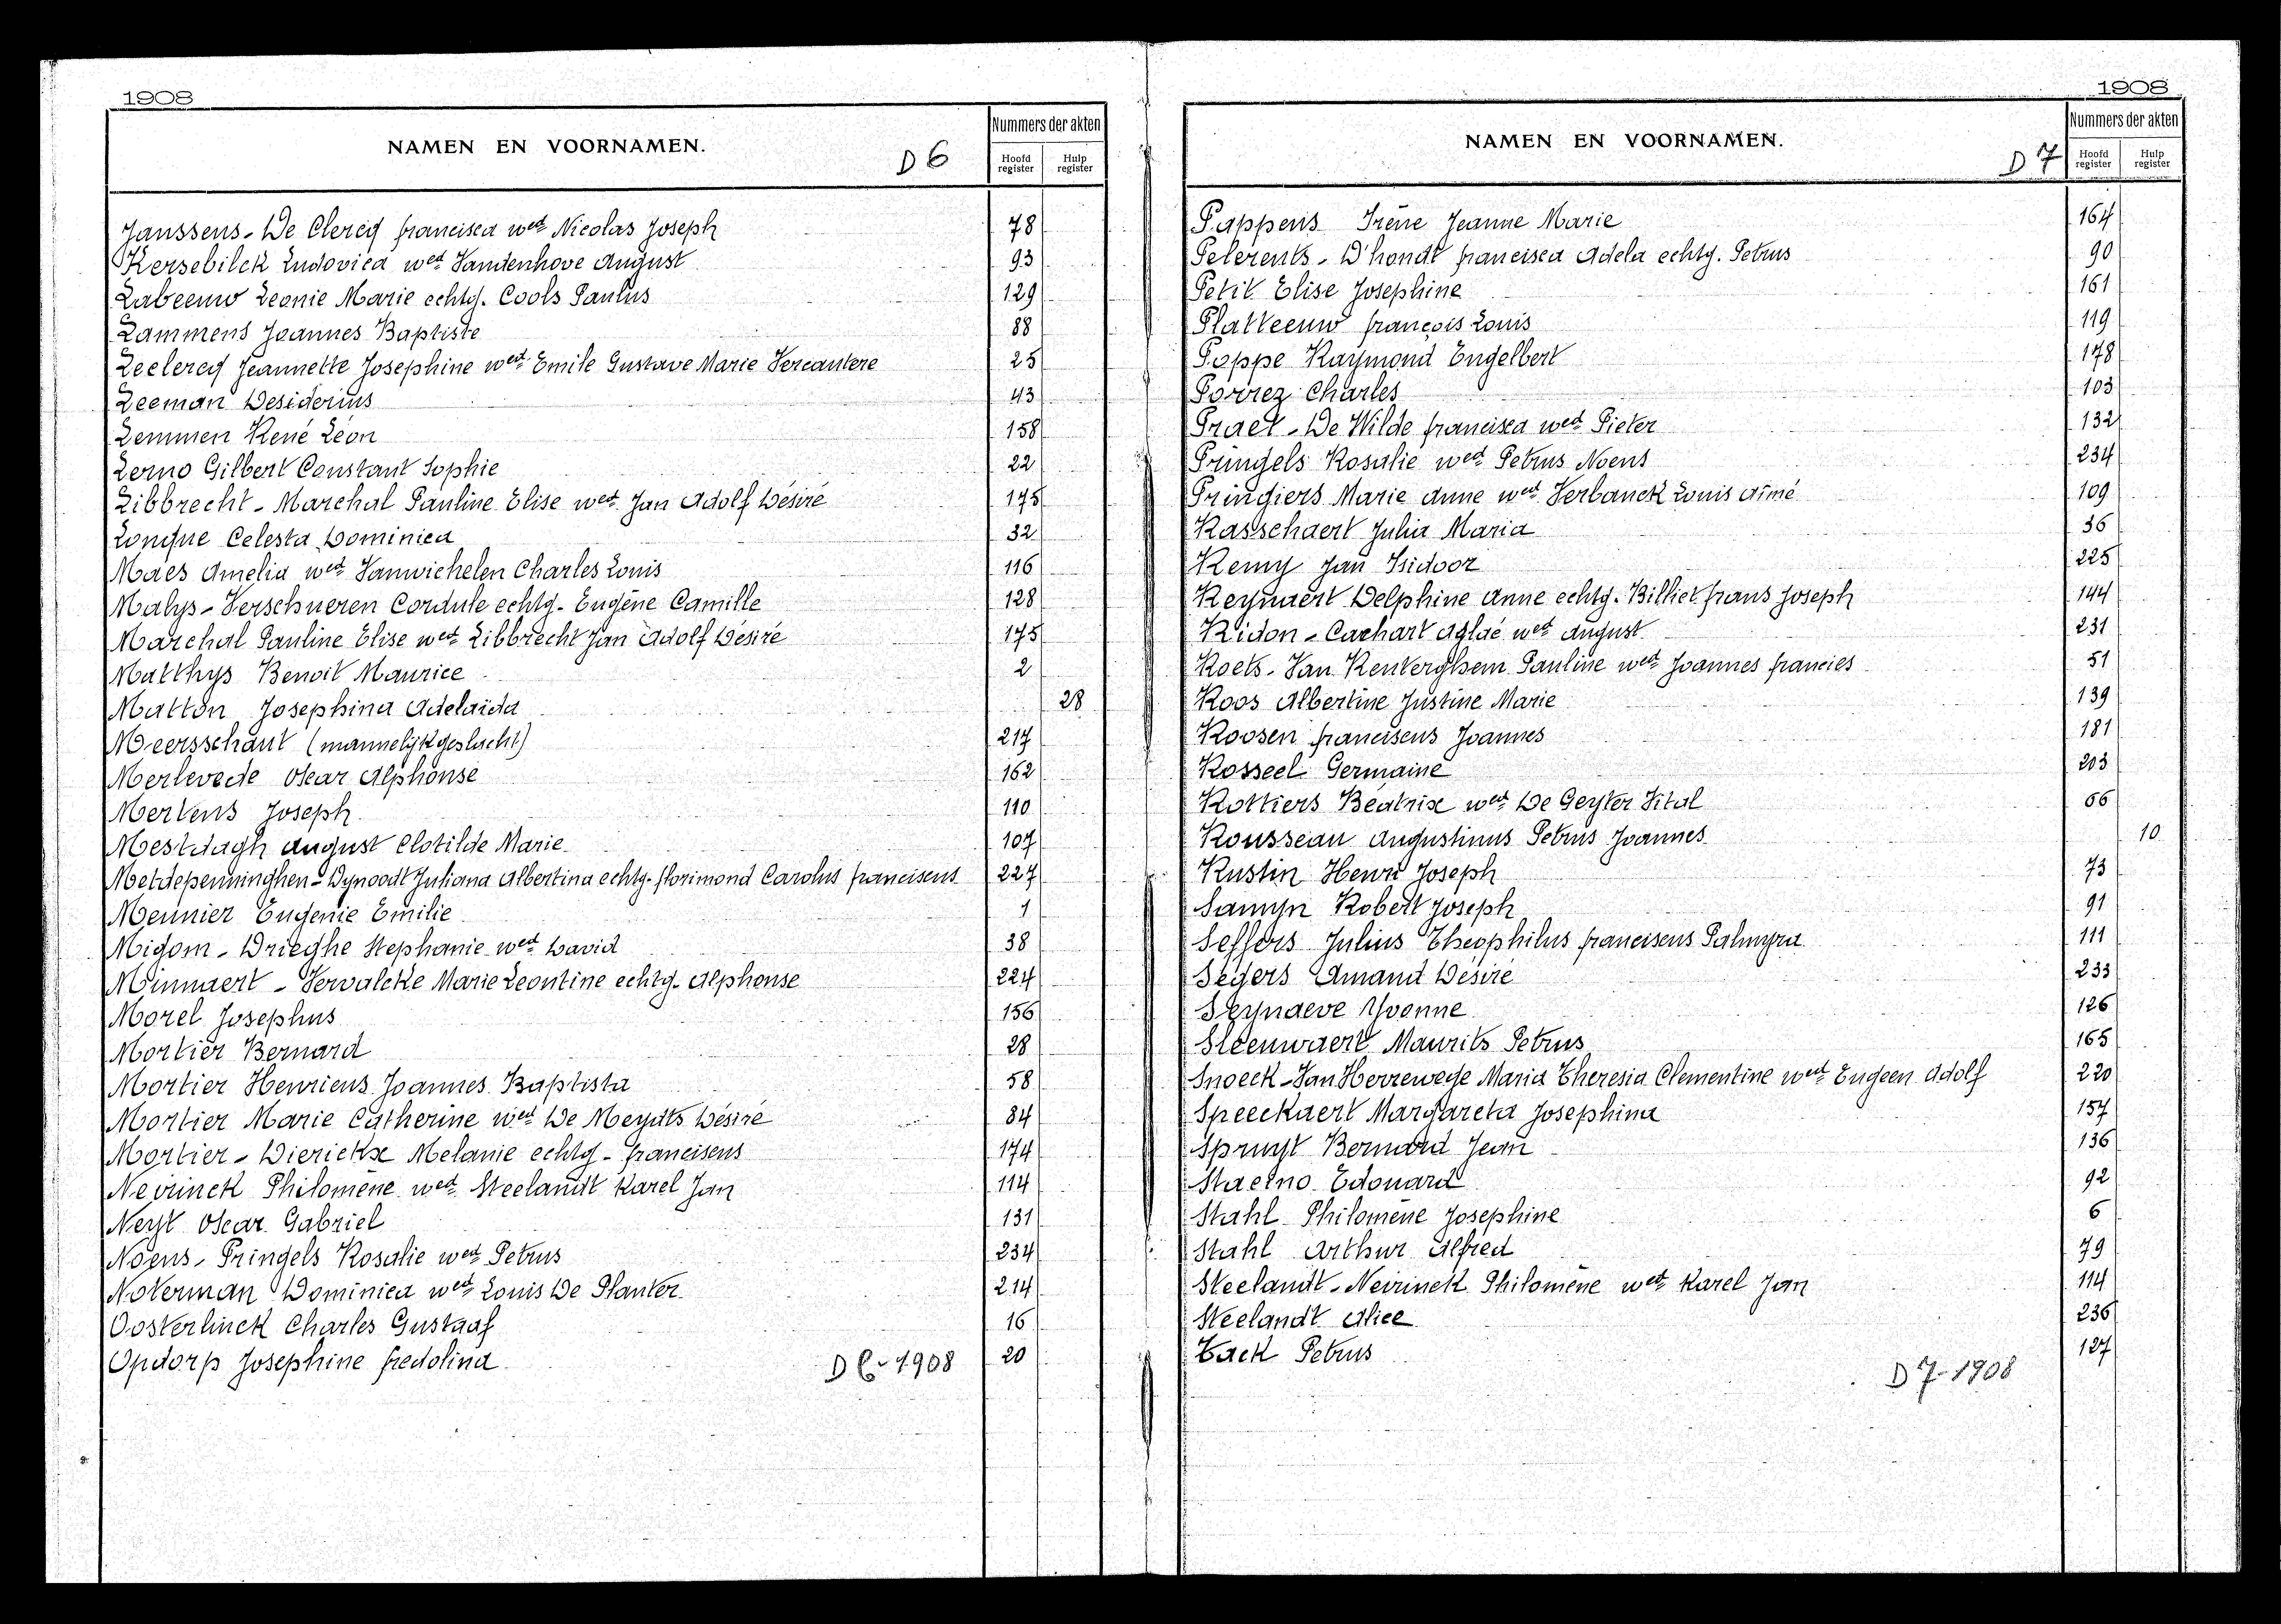 1908
NAMEN EN VOORNAMEN.
D 6
Nummers der akten
Hoofd register
Hulp register
Janssens - De Clercq francisca wed. Nicolas Joseph 78
Kersebilck Ludovica wed. Vandenhove August 93
Labeeuw Leonie Marie echtg. Cools Paulus 129
Lammens Joannes Baptiste 88
Leclercq Jeannette Josephine wed. Emile Gustave Marie Vercautere 25
Leeman Desiderius 43
Lemmen René Léon 158
Lerno Gilbert Constant Sophie 22
Libbrecht - Marchal Pauline Elise wed. Jan Adolf Désiré 175
Lonque Celesta Dominica 32
Maes Amelia wed. Vanwichelen Charles Louis 116
Malys - Verschueren Cordule echtg. Eugène Camille 128
Marchal Pauline Elise wed. Libbrecht Jan Adolf Désiré 175
Matthys Benoit Maurice 2
Matton Josephina Adelaida 28
Meersschaut (mannelijk geslacht) 217
Merlevede Oscar Alphonse 162
Mertens Joseph 110
Mestdagh August Clotilde Marie 107
Metdepenninghen - Dynoodt Juliana Albertina echtg. florimond Carolus franciscus 227
Meunier Eugenie Emilie 1
Migom - Drieghe Stephanie wed. David 38
Minnaert - Vervalcke Marie Leontine echtg. Alphonse 224
Morel Josephus 156
Mortier Bernard 28
Mortier Henricus Joannes Baptista 58
Mortier Marie Catherine wed. De Meydts Désiré 84
Mortier - Dierickx Melanie echtg. franciscus 174
Neirinck Philomène wed. Steelandt Karel Jan 114
Neyt Oscar Gabriel 131
Noens - Pringels Rosalie wed. Petrus 234
Noterman Dominica wed. Louis De Planter 214
Oosterlinck Charles Gustaaf 16
Opdorp Josephine fredolina 20
D 6 - 1908
1908
NAMEN EN VOORNAMEN.
D 7
Nummers der akten
Hoofd register
Hulp register
Pappens Irène Jeanne Marie 164
Pelerents - D'hondt francisca Adela echtg. Petrus 90
Petit Elise Josephine 161
Platteeuw françois Louis 119
Poppe Raymond Engelbert 178
Porrez Charles 103
Praet - De Wilde francisca wed. Pieter 132
Pringels Rosalie wed. Petrus Noens 234
Pringiers Marie Anne wed. Verbanck Louis Aimé 109
Rasschaert Julia Maria 36
Remy Jan Isidoor 225
Reynaert Delphine Anne echtg. Billiet frans Joseph 144
Ridon - Cachart Aglaé wed. August 231
Roets - Van Renterghem Pauline wed. Joannes francies 51
Roos Albertine Justine Marie 139
Roosen franciscus Joannes 181
Rosseel Germaine 203
Rottiers Béatrix wed. De Geyter Vital 66
Rousseau Augustinus Petrus Joannes 10
Rustin Henri Joseph 73
Samyn Robert Joseph 91
Seffers Julius Theophilus franciscus Palmyra 111
Segers Amand Désiré 233
Seynaeve Yvonne 126
Sleenwaert Maurits Petrus 165
Snoeck - Van Herrewege Maria Theresia Clementine wed. Eugeen Adolf 220
Speeckaert Margareta Josephina 157
Spruyt Bernard Jean 136
Staelno Edouard 92
Stahl Philomène Josephine 6
Stahl Arthur Alfred 79
Steelandt - Neirinck Philomène wed. Karel Jan 114
Steelandt Alice 236
Tack Petrus 127
D 7 - 1908